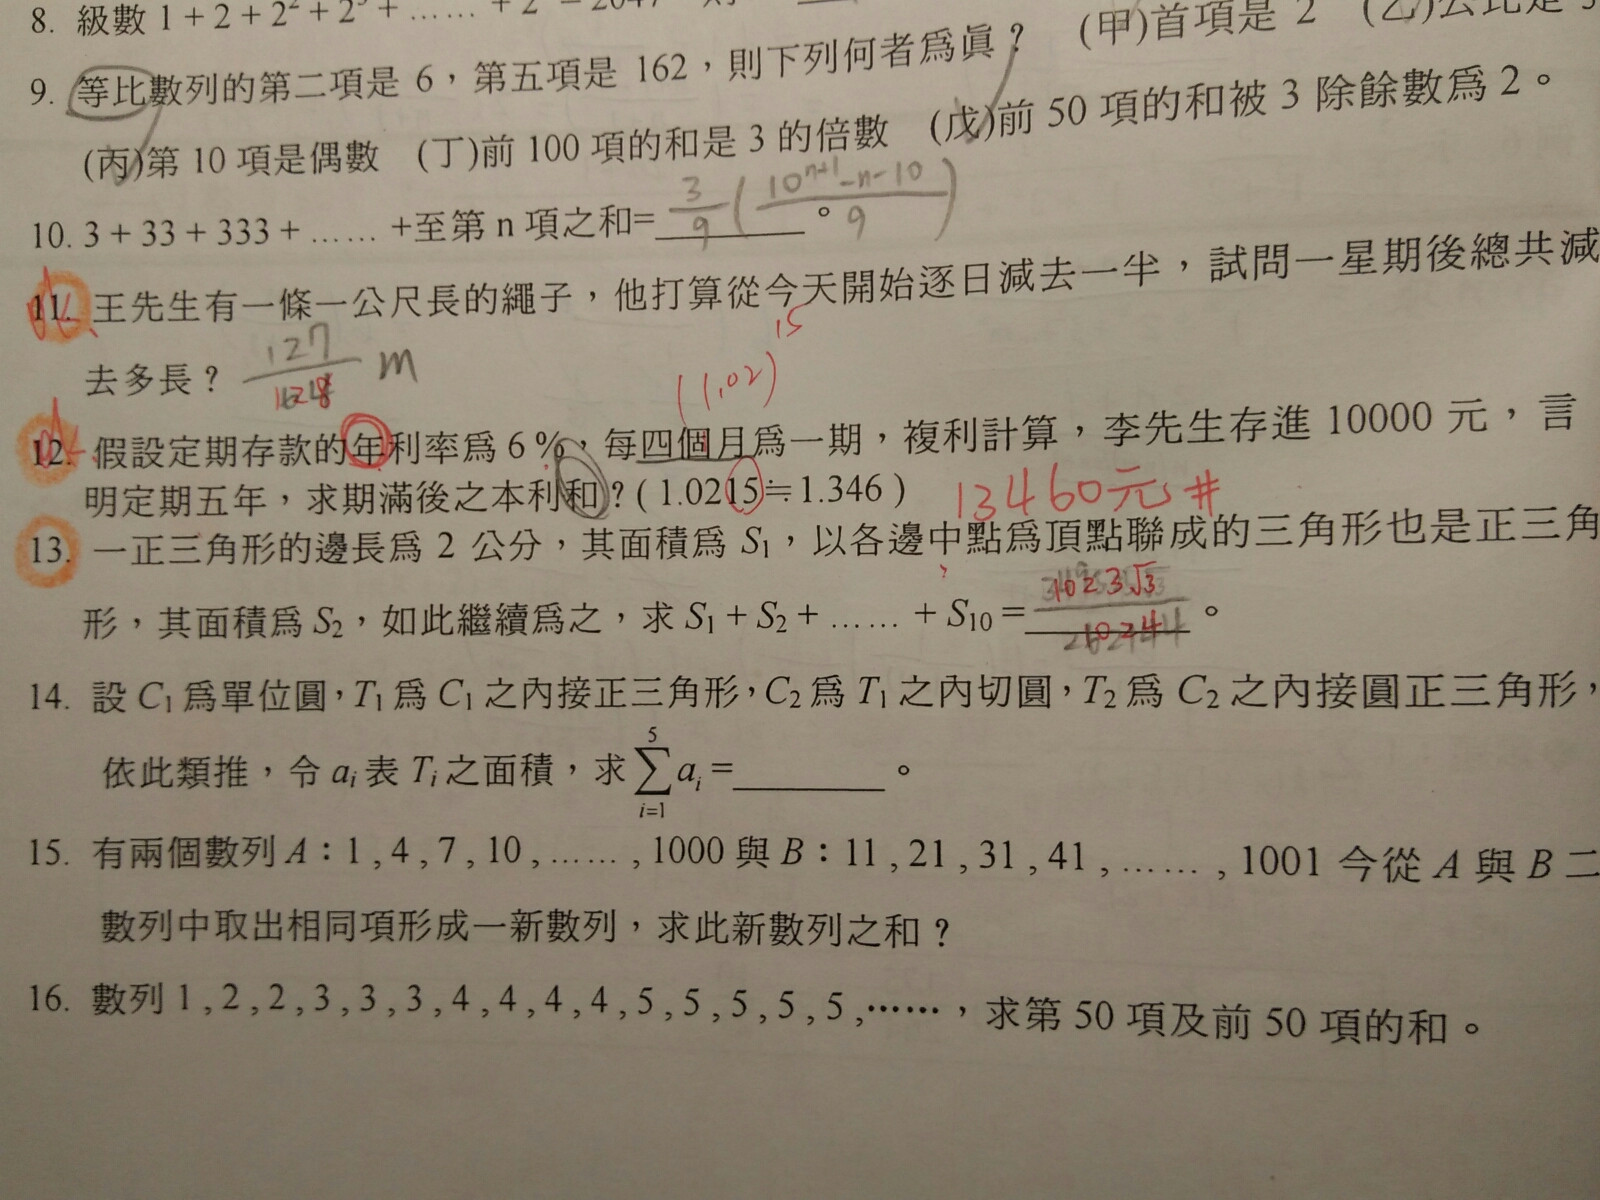 8. 級數 1 + 2 + 2² + 2³ + …… + 2 = 2047
9. 等比數列的第二項是 6，第五項是 162，則下列何者爲眞？ (甲)首項是 2 (乙)公比是 3
(丙)第 10 項是偶數 (丁)前 100 項的和是 3 的倍數 (戊)前 50 項的和被 3 除餘數爲 2。
10. 3 + 33 + 333 + …… +至第 n 項之和= 3/9 ( (10ⁿ⁺¹-n-10)/9 ) 。
ok. 11. 王先生有一條一公尺長的繩子，他打算從今天開始逐日減去一半，試問一星期後總共減
去多長？ 127/128 m
(1.02)¹⁵
ok. 12. 假設定期存款的年利率爲 6 %，每四個月爲一期，複利計算，李先生存進 10000 元，言
明定期五年，求期滿後之本利和？( 1.0215≒1.346 ) 13460元 #
13. 一正三角形的邊長爲 2 公分，其面積爲 S₁，以各邊中點爲頂點聯成的三角形也是正三角
形，其面積爲 S₂，如此繼續爲之，求 S₁ + S₂ + …… + S₁₀ = 1023√3/1024 。
14. 設 C₁ 爲單位圓，T₁ 爲 C₁ 之內接正三角形，C₂ 爲 T₁ 之內切圓，T₂ 爲 C₂ 之內接圓正三角形，
依此類推，令 aᵢ 表 Tᵢ 之面積，求 ∑_{i=1}^{5} aᵢ =________。
15. 有兩個數列 A：1 , 4 , 7 , 10 , …… , 1000 與 B：11 , 21 , 31 , 41 , …… , 1001 今從 A 與 B 二
數列中取出相同項形成一新數列，求此新數列之和？
16. 數列 1 , 2 , 2 , 3 , 3 , 3 , 4 , 4 , 4 , 4 , 5 , 5 , 5 , 5 , 5 ,……，求第 50 項及前 50 項的和。